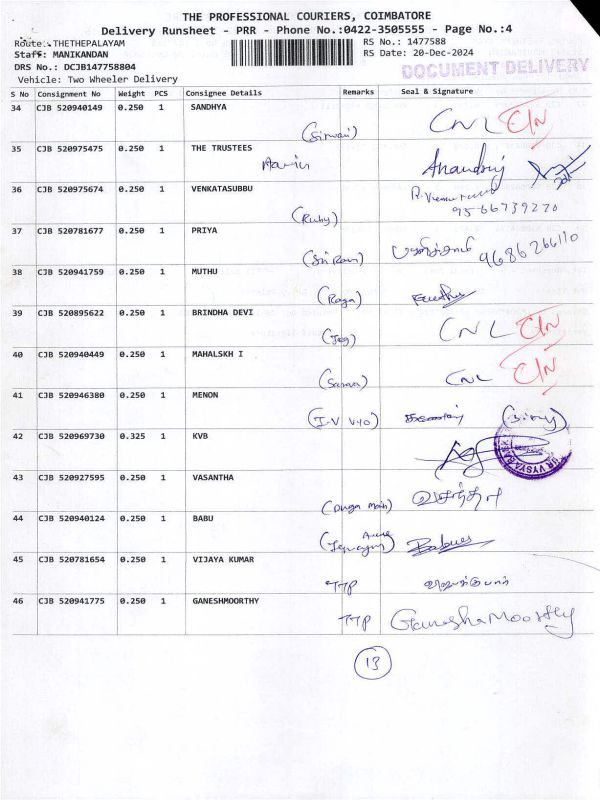 THE PROFESSIONAL COURIERS, COIMBATORE
Delivery Runsheet - PRR - Phone No.:0422-3505555 - Page No.:4
Route.:THETHEPALAYAM RS No.: 1477588
Staff: MANIKANDAN RS Date: 20-Dec-2024
DRS No.: DCJB147758804 DOCUMENT DELIVERY
Vehicle: Two Wheeler Delivery
S No Consignment No Weight PCS Consignee Details Remarks Seal & Signature
34 CJB 520940149 0.250 1 SANDHYA
CNL
35 CJB 520975475 0.250 1 THE TRUSTEES
36 CJB 520975674 0.250 1 VENKATASUBBU
(Ruby) 9566739270
37 CJB 520781677 0.250 1 PRIYA
(Sri Ram) 9686266110
38 CJB 520941759 0.250 1 MUTHU
(Raga)
39 CJB 520895622 0.250 1 BRINDHA DEVI
CNL
40 CJB 520940449 0.250 1 MAHALSKH I
CNL
41 CJB 520946380 0.250 1 MENON
42 CJB 520969730 0.325 1 KVB
43 CJB 520927595 0.250 1 VASANTHA
வசந்தா
44 CJB 520940124 0.250 1 BABU
45 CJB 520781654 0.250 1 VIJAYA KUMAR
TTP
46 CJB 520941775 0.250 1 GANESHMOORTHY
TTP GaneshaMoorthy
13